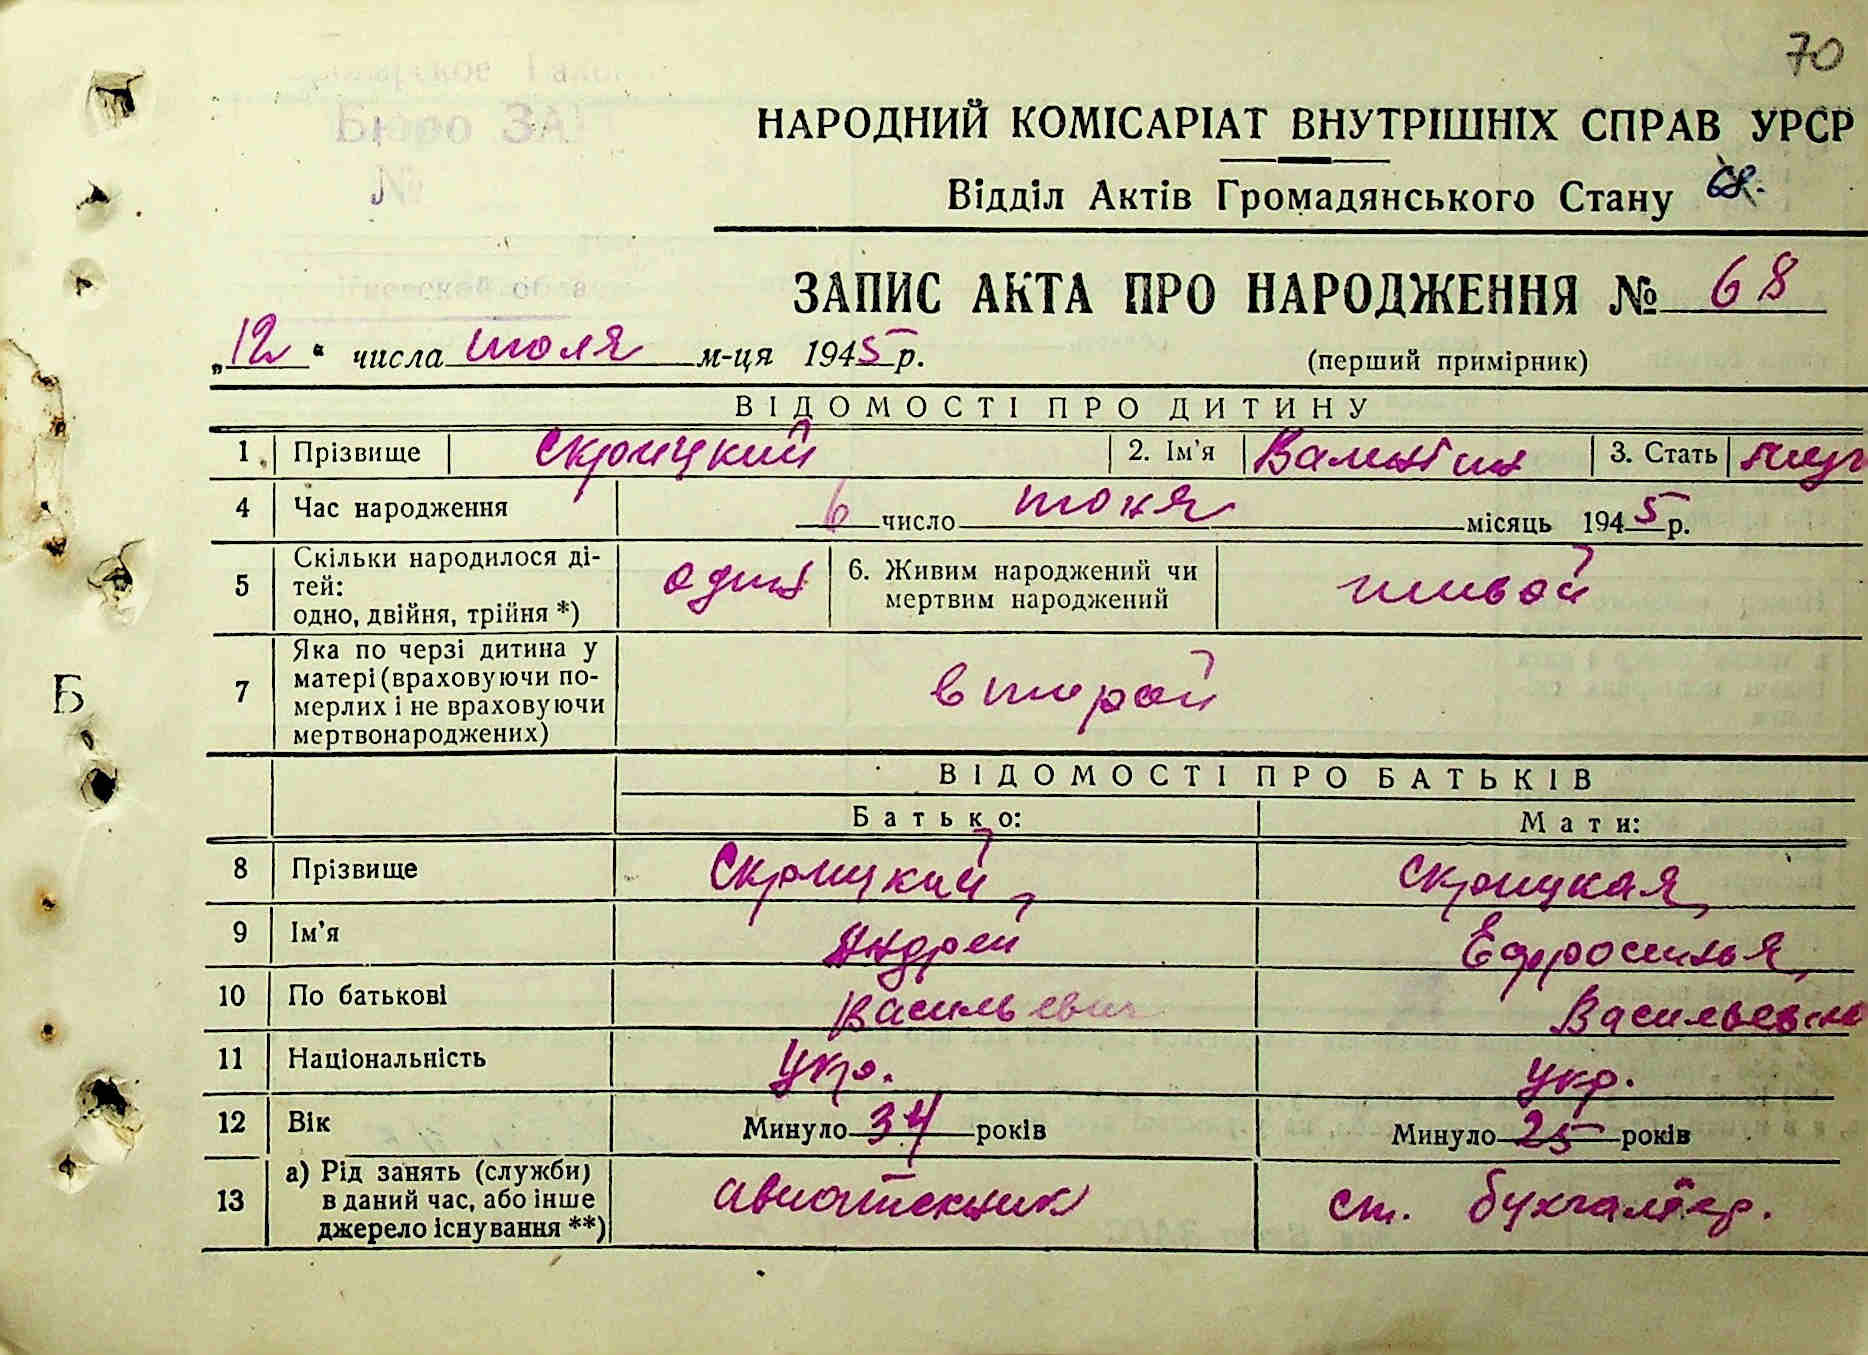 70
НАРОДНИЙ КОМІСАРІАТ ВНУТРІШНІХ СПРАВ УРСР
Відділ Актів Громадянського Стану
ЗАПИС АКТА ПРО НАРОДЖЕННЯ № 68
„12“ числа июля м-ця 1945 р. (перший примірник)
ВІДОМОСТІ ПРО ДИТИНУ
1 Прізвище Скрицкий 2. Ім'я Валентин 3. Стать муж
4 Час народження 6 число июня місяць 1945 р.
5 Скільки народилося ді-
тей:
одно, двійня, трійня *) один 6. Живим народжений чи
мертвим народжений живой
7 Яка по черзі дитина у
матері (враховуючи по-
мерлих і не враховуючи
мертвонароджених) второй
Б
ВІДОМОСТІ ПРО БАТЬКІВ
Батько: Мати:
8 Прізвище Скрицкий Скрицкая
9 Ім'я Андрей Ефросинья
10 По батькові Васильевич Васильевна
11 Національність укр. укр.
12 Вік Минуло 34 років Минуло 25 років
13 а) Рід занять (служби)
в даний час, або інше
джерело існування **) авиатехник ст. бухгалтер.